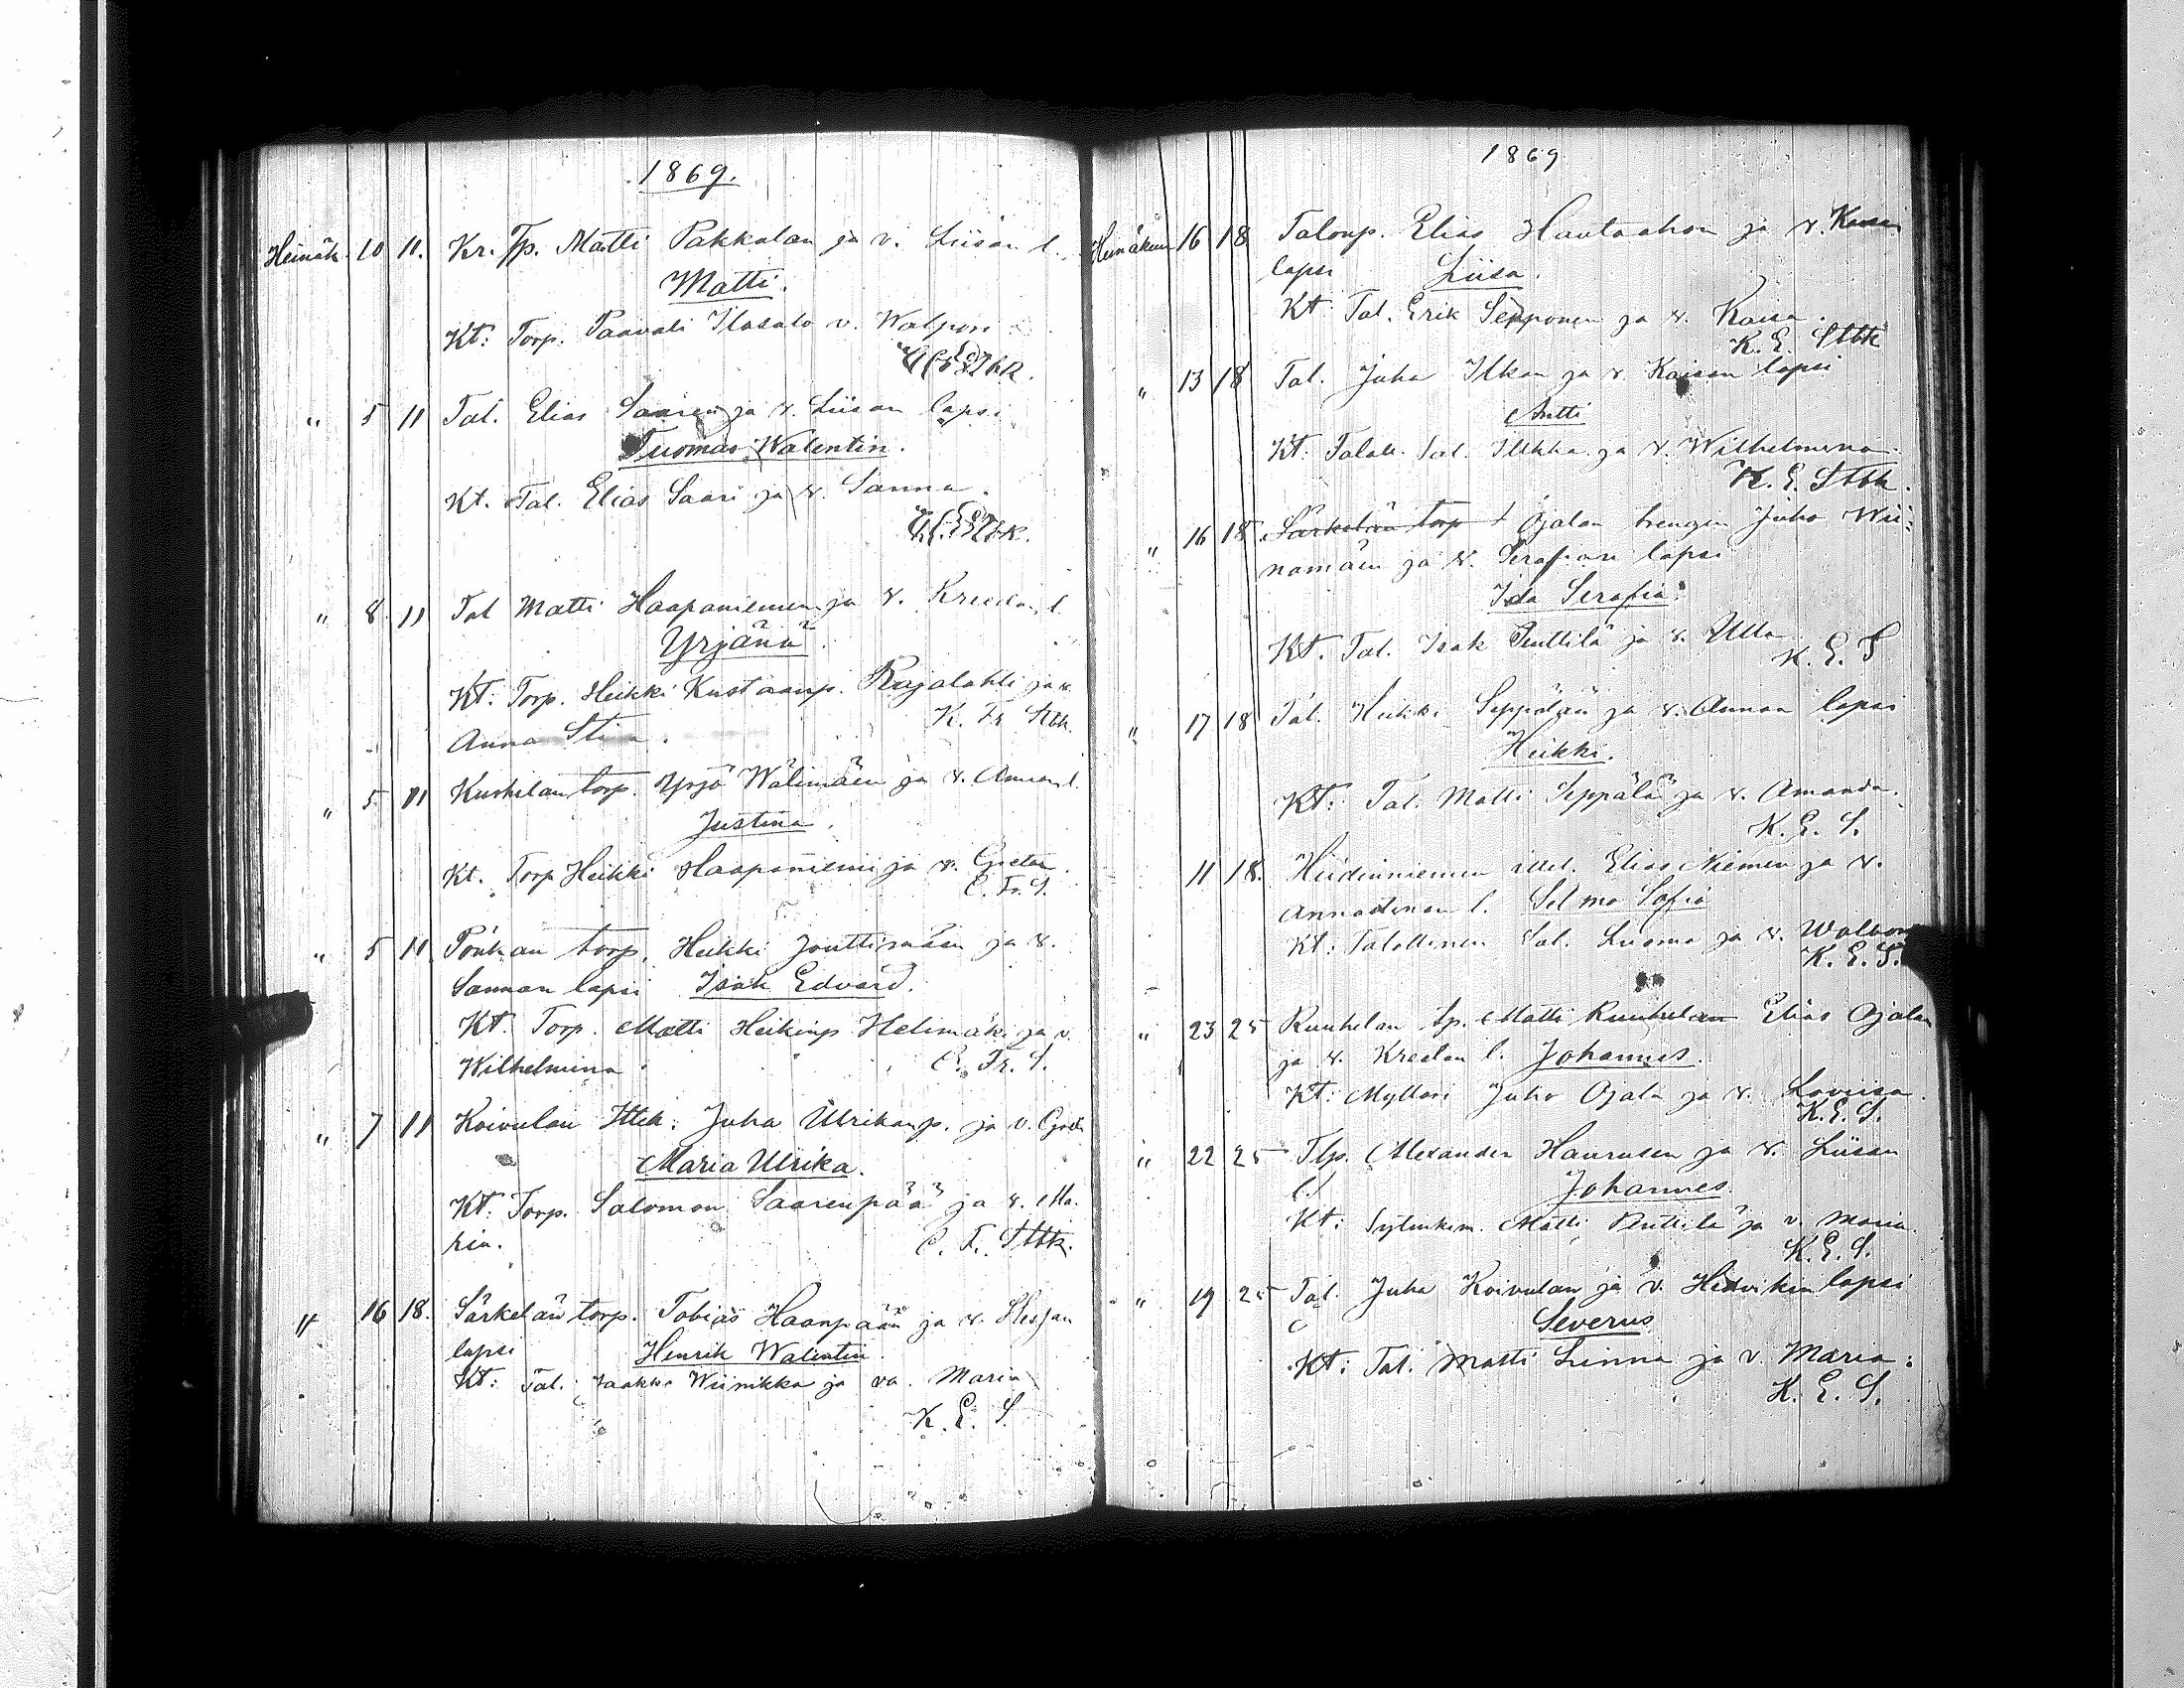 1869.
Heinäk. 10 11. Kr. Tp. Matti Pakkalan ja v. Liisan l.
Matti.
Kt: Torp. Paavali Ilosalo v. Walpori
" 5 11 Tal. Elias Saaren ja v. Liisan lapsi
Tuomas Walentin.
Kt. Tal. Elias Saari ja v. Sanna.
" 8 11 Tal Matti Haapaniemen ja v. Kreeda, l.
Yrjänä.
Kt: Torp. Heikki Kustaanp. Rajalahti ja v.
Anna Stina. K. Fr. Stbk
" 5 11 torp. Yrjö Wälimäen ja v. Annan l.
Justina.
Kt. Torp Heikki Haapaniemi ja v. Greta.
C. Fr. S.
" 5 11 torp. Heikki Jouttimäen ja v.
Sannan lapsi Isak Edvard.
Kt. Torp. Matti Heikinp Helimäki ja v.
Wilhelmina. C. Fr. S.
" 7 11 Koivulan Ittell. Juha Ulrikanp. ja v.
Maria Ulrika.
Kt: Torp. Salomon Saarenpää ja v. Ma-
ria. C. F. Stbk.
" 16 18. Särkelän torp. Tobias Haanpään ja v.
lapsi Henrik Walentin.
Kt: Tal. Jaakko Wiinikka ja va. Maria
K. E. S
1869
Heinäkuu 16 18 Talonp. Elias Hautaahon ja v. Kaisa
lapsi Liisa.
Kt Tal. Erik Sepponen ja v. Kaisa.
K. E. Stbk
" 13 18 Tal. Juha Ilkan ja v. Kaisan lapsi
Antti
Kt. Taloll. Sal. Ilkka ja v. Wilhelmina.
K. E. Stbk.
" 16 18 Särkelän torp Ojalan trengin Juho Wii-
namäen ja v. Serafian lapsi
Ida Serafia.
Kt. Tal. Isak Penttilä ja v. Ulla
K. E. S
" 17 18 Tal. Heikki Seppälän ja v. Annan lapsi
Heikki.
Kt: Tal. Matti Seppälä ja v. Amanda.
K. E. S.
11 18. Hiidenniemen ittel. Elias Niemen ja v.
l. Selma Sofia
Kt: Talollinen Sal. Luoma ja v. Walbor
K. E. S.
" 23 25 Ruuhelan tp. Matti Ruuhelan Elias Ojalan
ja v. Kreetan l. Johannes.
Kt: Mylläri Juho Ojala ja v. Loviisa.
K. E. S.
" 22 25 Tlp. Alexander Haurusen ja v. Liisan
l. Johannes.
Kt: Matti Penttilä ja v. Maria.
K. E. S.
" 19 25 Tal. Juha Koivulan ja v. Hedvikin lapsi
Severus
Kt: Tal. Matti Linna ja v. Maria.
K. E. S.